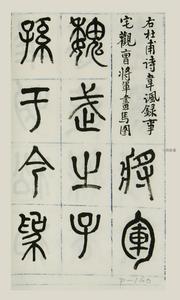 右杜甫诗韋諷錄事
宅觀曹將軍畫馬圖
將軍
魏武之子
孫于今為